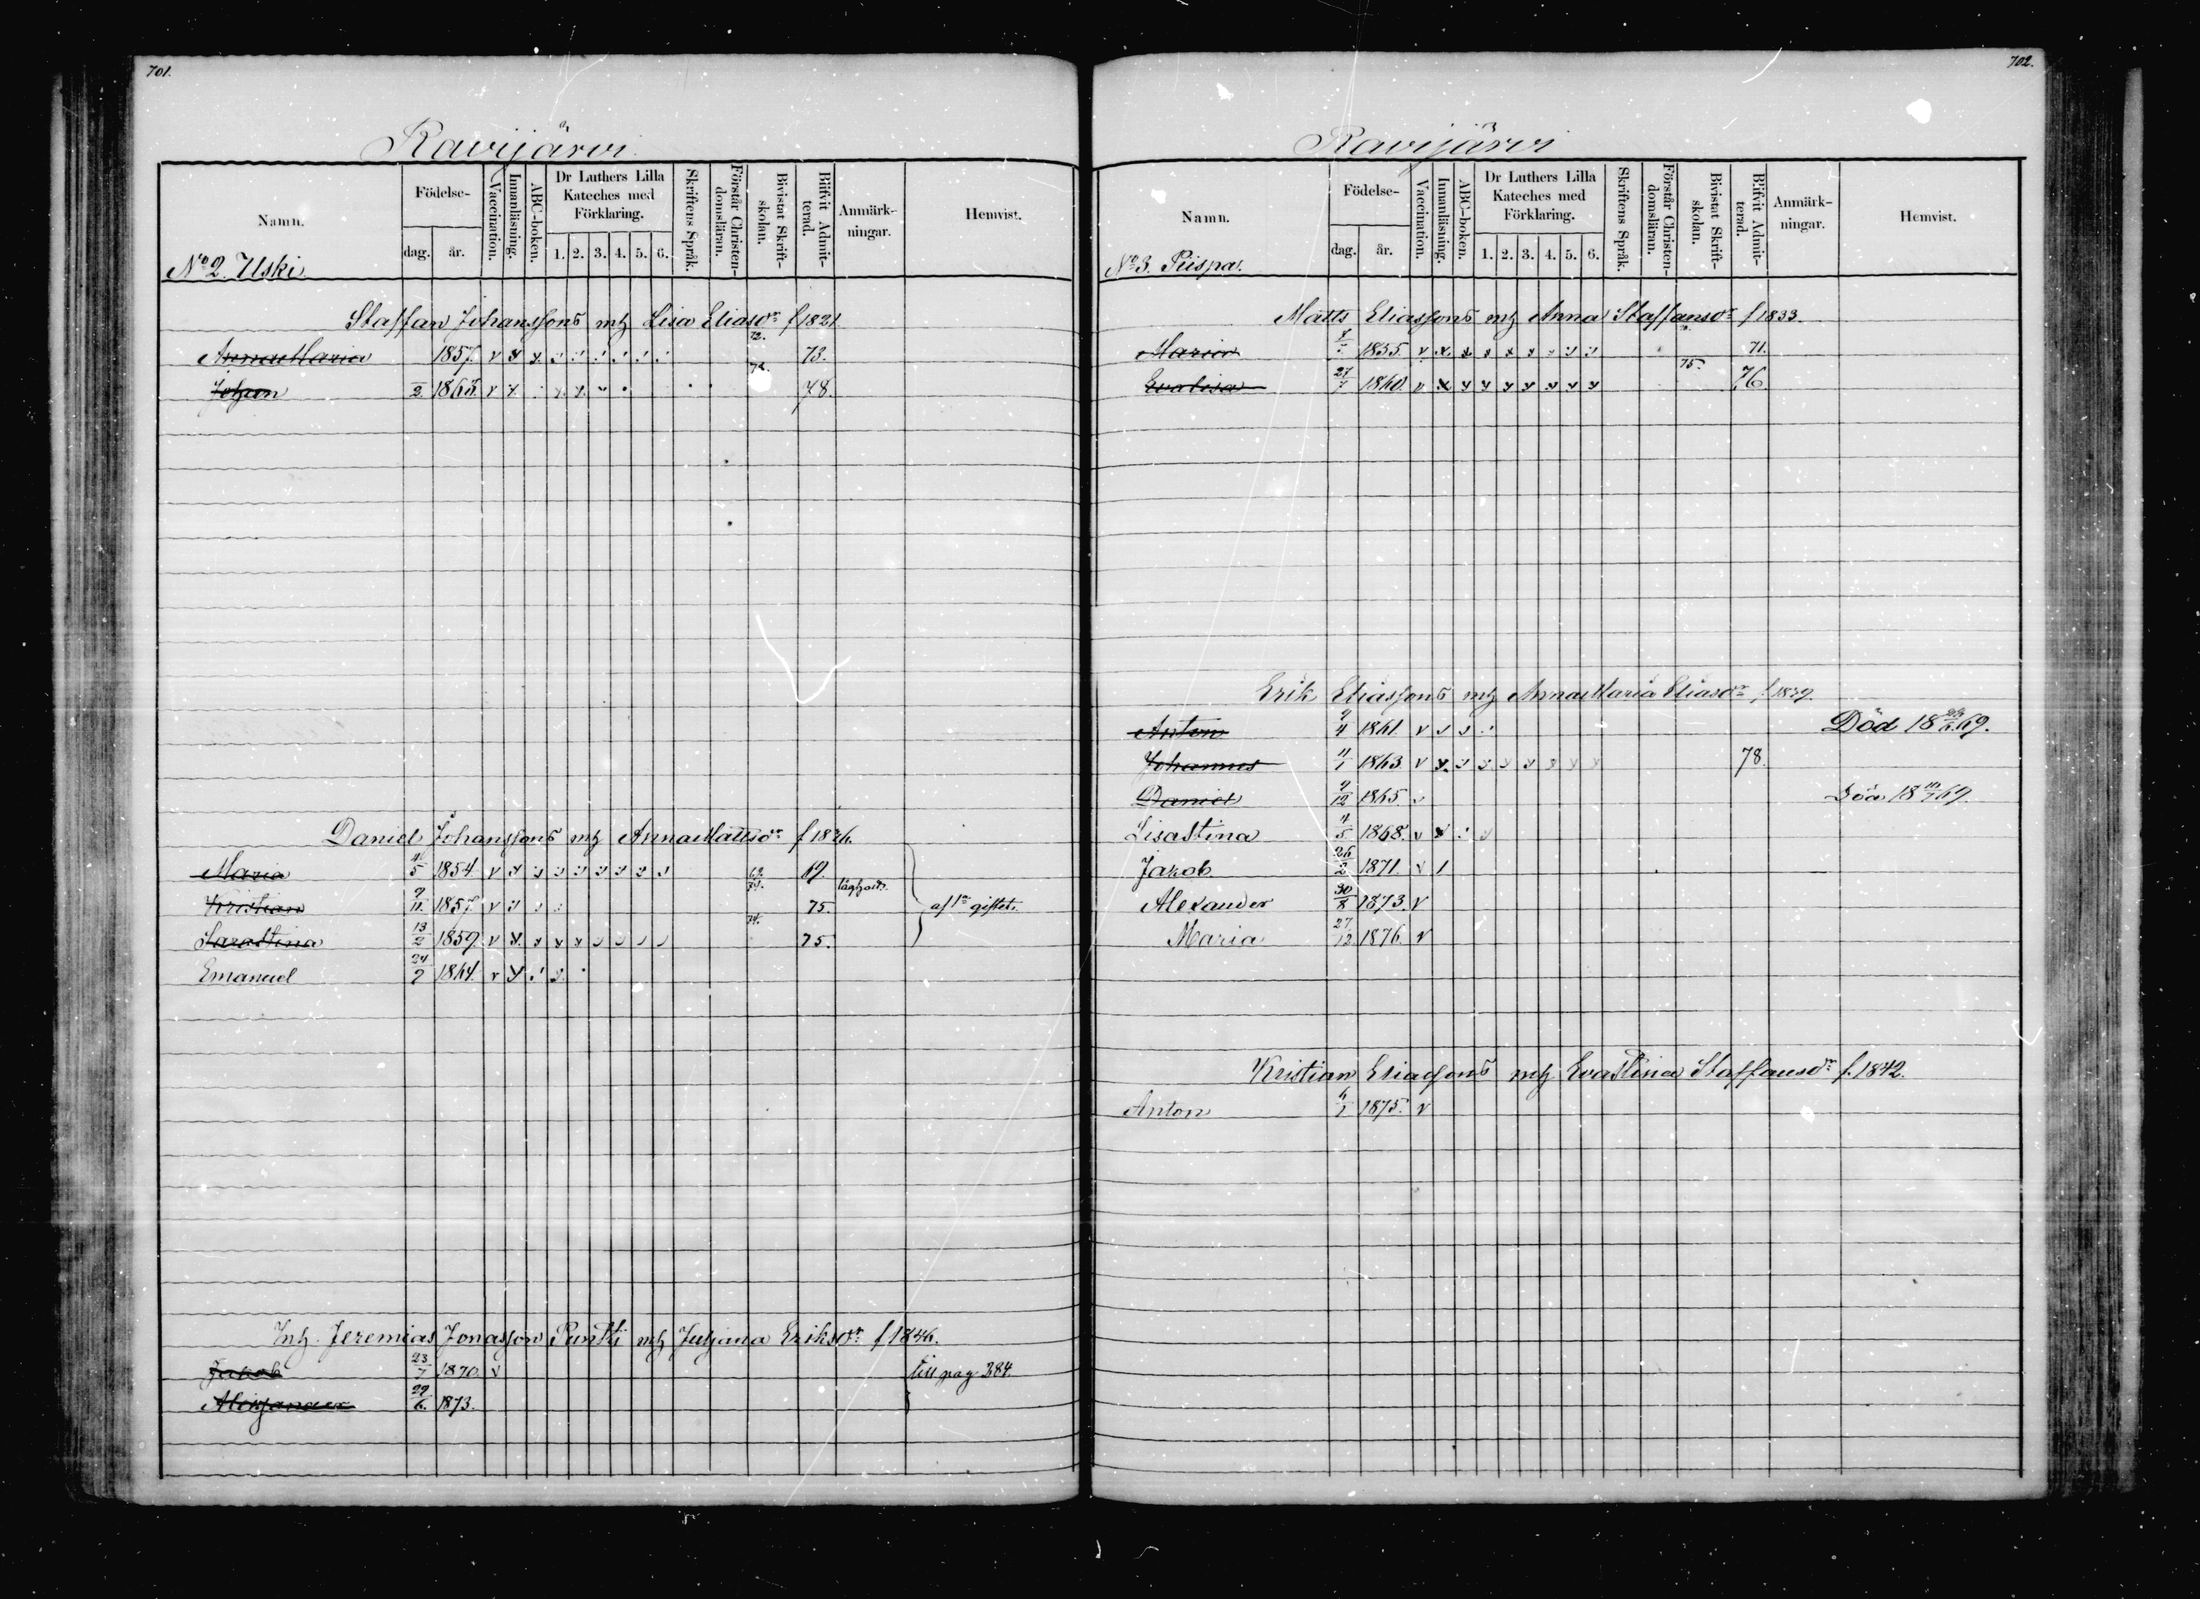 701.
Ravijärvi
Namn.
Födelse-
dag.
år.
Vaccination.
Innanläsning.
ABC-boken.
Dr Luthers Lilla
Kateches med
Förklaring.
1. 2. 3. 4. 5. 6.
Skriftens Språk.
Förstår Christen-
domsläran.
Bivistat Skrift-
skolan.
Blifvit Admit-
terad.
Anmärk-
ningar.
Hemvist.
No 2. Uski
Staffan Johanssons mh Lisa Eliasdr f 1821
Anna Maria 1857. 72. 73.
Johan 1863. 78. 78.
Daniel Johanssons mh Anna Mattsdr f 1836.
Maria 5 1854. 69. 69.
Kristian 9/11 1857. 75. af 1sta giftet.
Sarastina 13/2 1859. 75.
Emanuel 24/7 1864.
Inh. Jeremias Jonasson Puntti mh Juljana Eriksdr f 1846.
Jakob 23/7 1870. till pag 384.
Alexander 29/6. 1873.
702.
Ravijärvi
Namn.
Födelse-
dag.
år.
Vaccination.
Innanläsning.
ABC-boken.
Dr Luthers Lilla
Kateches med
Förklaring.
1. 2. 3. 4. 5. 6.
Skriftens Språk.
Förstår Christen-
domsläran.
Bivistat Skrift-
skolan.
Blifvit Admit-
terad.
Anmärk-
ningar.
Hemvist.
No 3. Piispa.
Matts Eliassons mh Anna Staffansdr f 1833.
Maria 1855. 71.
Evalisa 27/7 1860. 75. 76.
Erik Eliassons mh Anna Maria Eliasdr f 1839.
Anton 9/4 1861. Död 18 69.
Johannes 11/1 1863. 78.
Daniel 9/12 1865 Död 18 69.
Lisastina 4/5 1868.
Jakob 26/2 1871.
Alexander 30/8 1873.
Maria 27/12 1876.
Kristian Eliassons mh Evastina Staffansdr f. 1842.
Anton 1875.